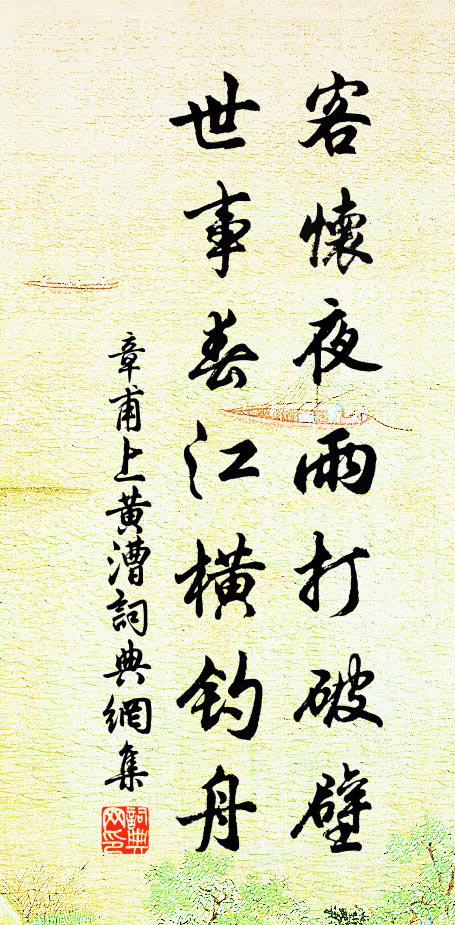 客懷夜雨打破壁
世事春江橫釣舟
章甫上黃漕詞典網集
詞典網印